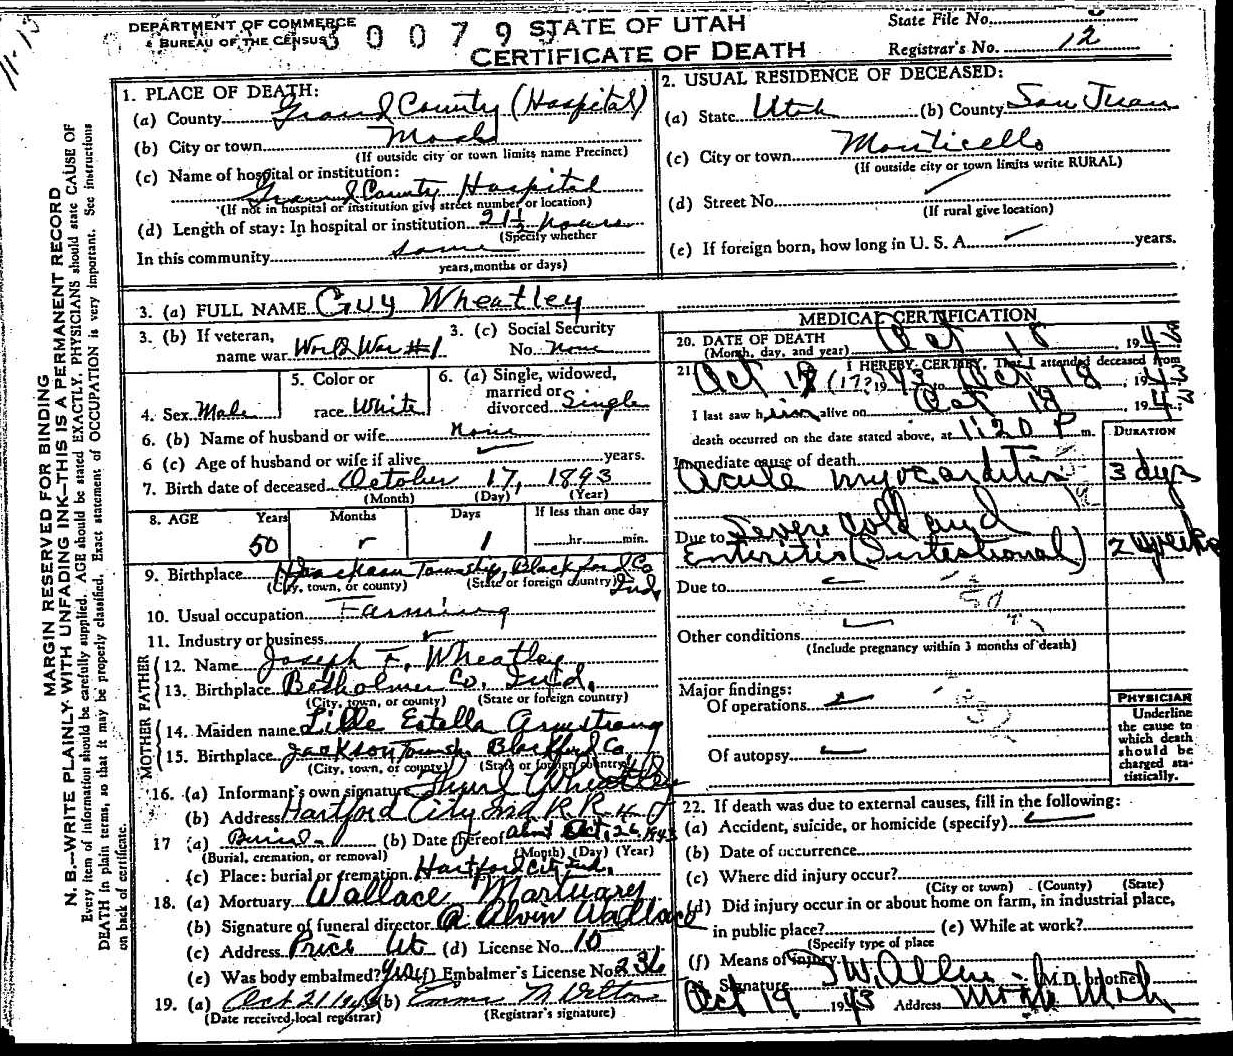 DEPARTMENT OF COMMERCE
BUREAU OF THE CENSUS
30079
STATE OF UTAH
CERTIFICATE OF DEATH
State File No.
Registrar's No. 12
11-13
MARGIN RESERVED FOR BINDING
N. B.—WRITE PLAINLY WITH UNFADING INK—THIS IS A PERMANENT RECORD
Every item of information should be carefully supplied. AGE should be stated EXACTLY. PHYSICIANS should state CAUSE OF
DEATH in plain terms, so that it may be properly classified. Exact statement of OCCUPATION is very important. See instructions
on back of certificate.
1. PLACE OF DEATH:
(a) County Grand County (Hospital)
(b) City or town Moab
(If outside city or town limits name Precinct)
(c) Name of hospital or institution:
Grand County Hospital
(If not in hospital or institution give street number or location)
(d) Length of stay: In hospital or institution 21½ hours
(Specify whether
In this community same
years, months or days)
2. USUAL RESIDENCE OF DECEASED:
(a) State Utah (b) County San Juan
(c) City or town Monticello
(If outside city or town limits write RURAL)
(d) Street No.
(If rural give location)
(e) If foreign born, how long in U. S. A. years.
3. (a) FULL NAME Guy Wheatley
3. (b) If veteran,
name war World War #1
3. (c) Social Security
No. None
4. Sex Male
5. Color or
race White
6. (a) Single, widowed,
married or
divorced Single
6. (b) Name of husband or wife None
6 (c) Age of husband or wife if alive years.
7. Birth date of deceased October 17, 1893
(Month) (Day) (Year)
8. AGE Years Months Days If less than one day
50 1 hr. min.
9. Birthplace Jackson Township, Blackford Co
(City, town, or county) (State or foreign country) Ind.
10. Usual occupation Farming
11. Industry or business
FATHER
12. Name Joseph F. Wheatley
13. Birthplace Co. Ind.
(City, town, or county) (State or foreign country)
MOTHER
14. Maiden name Lille Estella Armstrong
15. Birthplace Jackson Townsh. Blackford Co
(City, town, or county) (State or foreign country)
16. (a) Informant's own signature Wheatley
(b) Address Hartford City Ind R.R.
17 (a) Burial (b) Date thereof Oct. 26 1943
(Burial, cremation, or removal) (Month) (Day) (Year)
(c) Place: burial or cremation Hartford City Ind.
18. (a) Mortuary Wallace Mortuary
(b) Signature of funeral director A Alvin Wallace
(c) Address Price Ut (d) License No. 10
(e) Was body embalmed? Yes (f) Embalmer's License No. 236
19. (a) Oct 21 1943 (b) Emma M
(Date received local registrar) (Registrar's signature)
MEDICAL CERTIFICATION
20. DATE OF DEATH Oct 18, 1943
(Month, day, and year)
21. I HEREBY CERTIFY, That I attended deceased from
Oct 18 (17?) 1943 to Oct 18, 1943
I last saw him alive on Oct 18 1943;
death occurred on the date stated above, at 1:20 P m.
DURATION
Immediate cause of death
Acute myocarditis 3 days
Due to Severe cold and
Enteritis (Intestional) 2 weeks
Due to
Other conditions
(Include pregnancy within 3 months of death)
Major findings:
Of operations
Of autopsy
PHYSICIAN
Underline
the cause to
which death
should be
charged sta-
tistically.
22. If death was due to external causes, fill in the following:
(a) Accident, suicide, or homicide (specify)
(b) Date of occurrence
(c) Where did injury occur?
(City or town) (County) (State)
(d) Did injury occur in or about home on farm, in industrial place,
in public place? (e) While at work?
(Specify type of place
(f) Means of injury
Signature J W. Allen (M.D. or other)
Oct 19 1943 Address Moab Utah